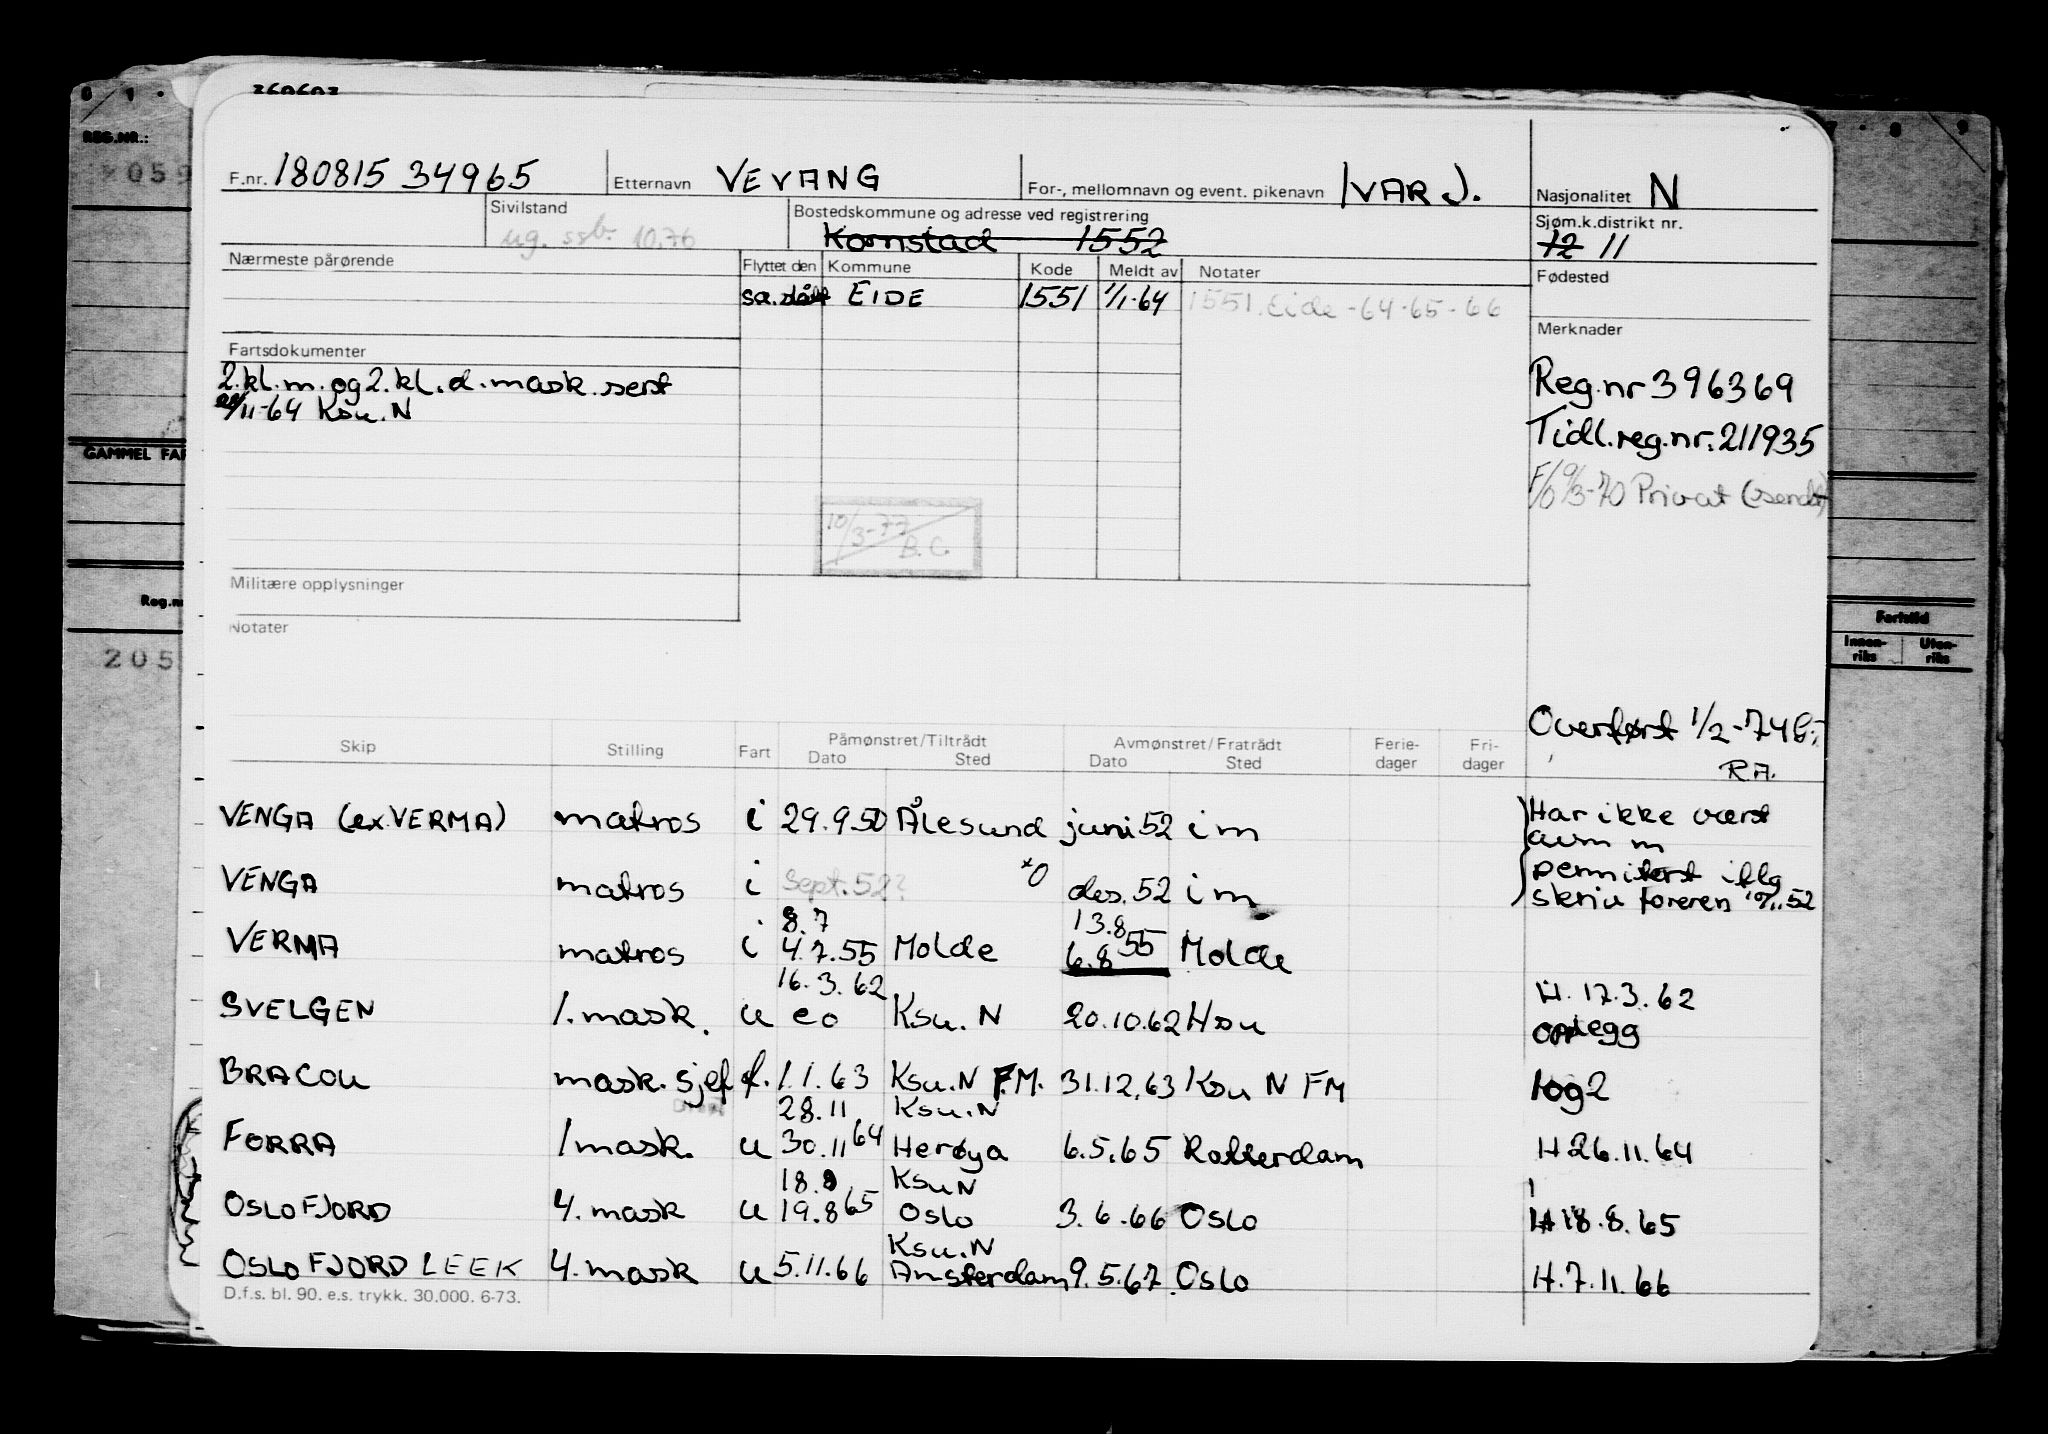 REG.NR.:
GAMMEL FAR
Reg.n
205
Fartstid
Innen-riks Uten-riks
F.nr. 180815 34965 Etternavn VEVANG For-, mellomnavn og event. pikenavn IVAR J. Nasjonalitet N
Sivilstand ug. ssb. 10.76 Bostedskommune og adresse ved registrering Kornstad 1552 Sjøm.k.distrikt nr. 12 11
Nærmeste pårørende Flyttet den Kommune Kode Meldt av Notater Fødested
EIDE 1551 1/1-64 1551. Eide -64-65-66
Merknader
Fartsdokumenter
2.kl.m.og 2.kl.d.mask.sert
/11-64 Ksu.N
Reg.nr 396369
Tidl.reg.nr.211935
3-70 Privat (sendt)
10/3-77
B.C.
Militære opplysninger
Notater
Overført 1/2-74
R.A.
Skip Stilling Fart Påmønstret/Tiltrådt Dato Sted Avmønstret/Fratrådt Dato Sted Ferie-dager Fri-dager
VENGA (ex.VERMA) matros i 29.9.50 Ålesund juni 52 i m Har ikke vært
avm m
VENGA matros i Sept.52? x0 des.52 i m permitert iflg
skriv foreren 52
8.7 13.8
VERMA matros i 4.7.55 Molde 6.8 55 Molde
16.3.62
SVELGEN 1.mask. u eo Ksu. N 20.10.62 Hsu H. 17.3.62
opplegg
BRACOU mask.sjef f. 1.1.63 Ksu.N F.M. 31.12.63 Ksu N FM 1og2
28.11 Ksu.N
FORRA 1 mask. u 30.11 64 Herøya 6.5.65 Rotterdam H 26.11.64
18.8 Ksu N
OSLOFJORD 4. mask u 19.8 65 Oslo 3.6.66 Oslo H 18.8.65
Ksu.N
OSLOFJORD LEEK 4. mask u 5.11.66 Amsterdam 9.5.67 Oslo H.7.11.66
D.f.s. bl. 90. e.s. trykk. 30.000. 6-73.